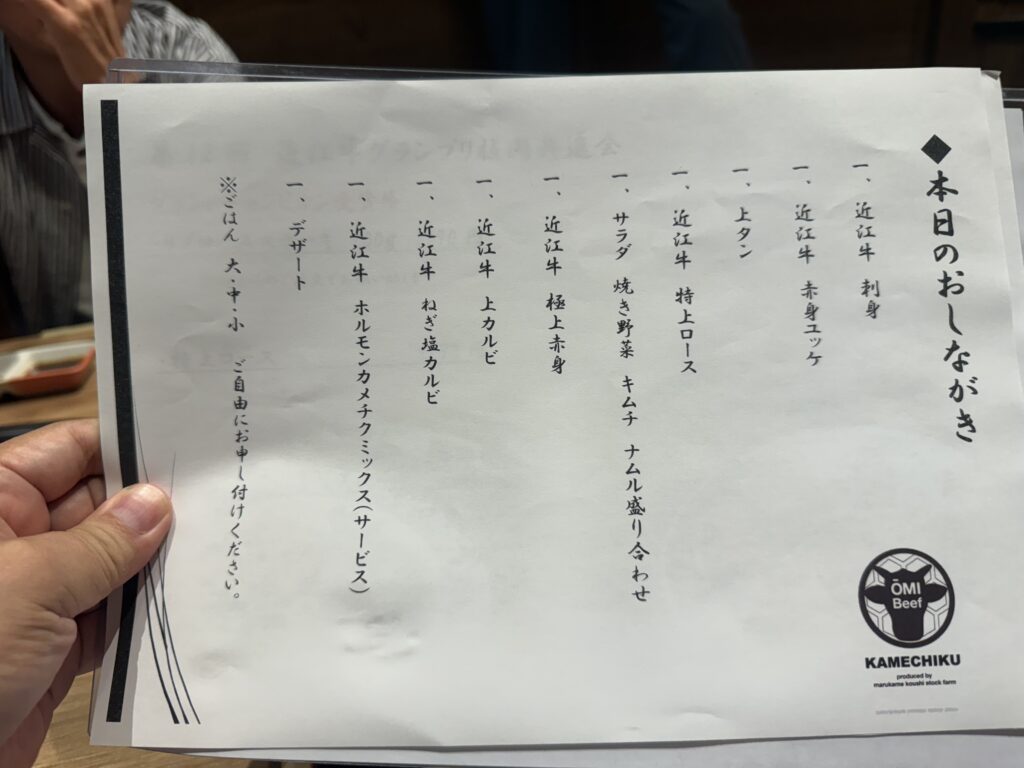 ◆本日のおしながき
一、近江牛 刺身
一、近江牛 赤身ユッケ
一、上タン
一、近江牛 特上ロース
一、サラダ 焼き野菜 キムチ ナムル盛り合わせ
一、近江牛 極上赤身
一、近江牛 上カルビ
一、近江牛 ねぎ塩カルビ
一、近江牛 ホルモンカメチクミックス(サービス)
一、デザート
※ごはん 大・中・小 ご自由にお申し付けください。
ŌMI
Beef
KAMECHIKU
produced by
marukame koushi stock farm